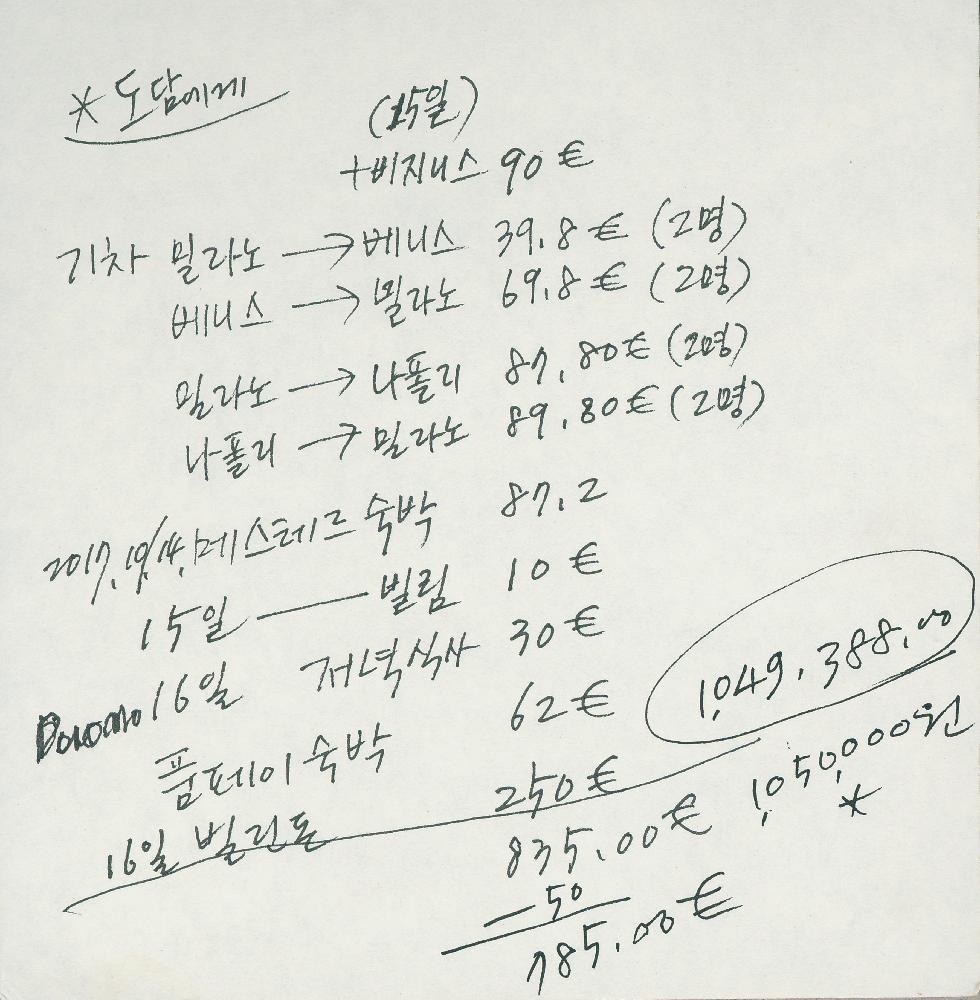 * 도담에게
(15일)
+비지니스 90 €
기차 밀라노 → 베니스 39.8 € (2명)
베니스 → 밀라노 69.8 € (2명)
밀라노 → 나폴리 87,80 € (2명)
나폴리 → 밀라노 89,80 € (2명)
2017, 10/14, 메스테르 숙박 87.2
15일 — 빌림 10 €
16일 저녁식사 30 €
폼페이 숙박 62 €
16일 빌린돈 250 €
835.00 €
-50
785.00 €
1,049,388.00
1,050,000원
*